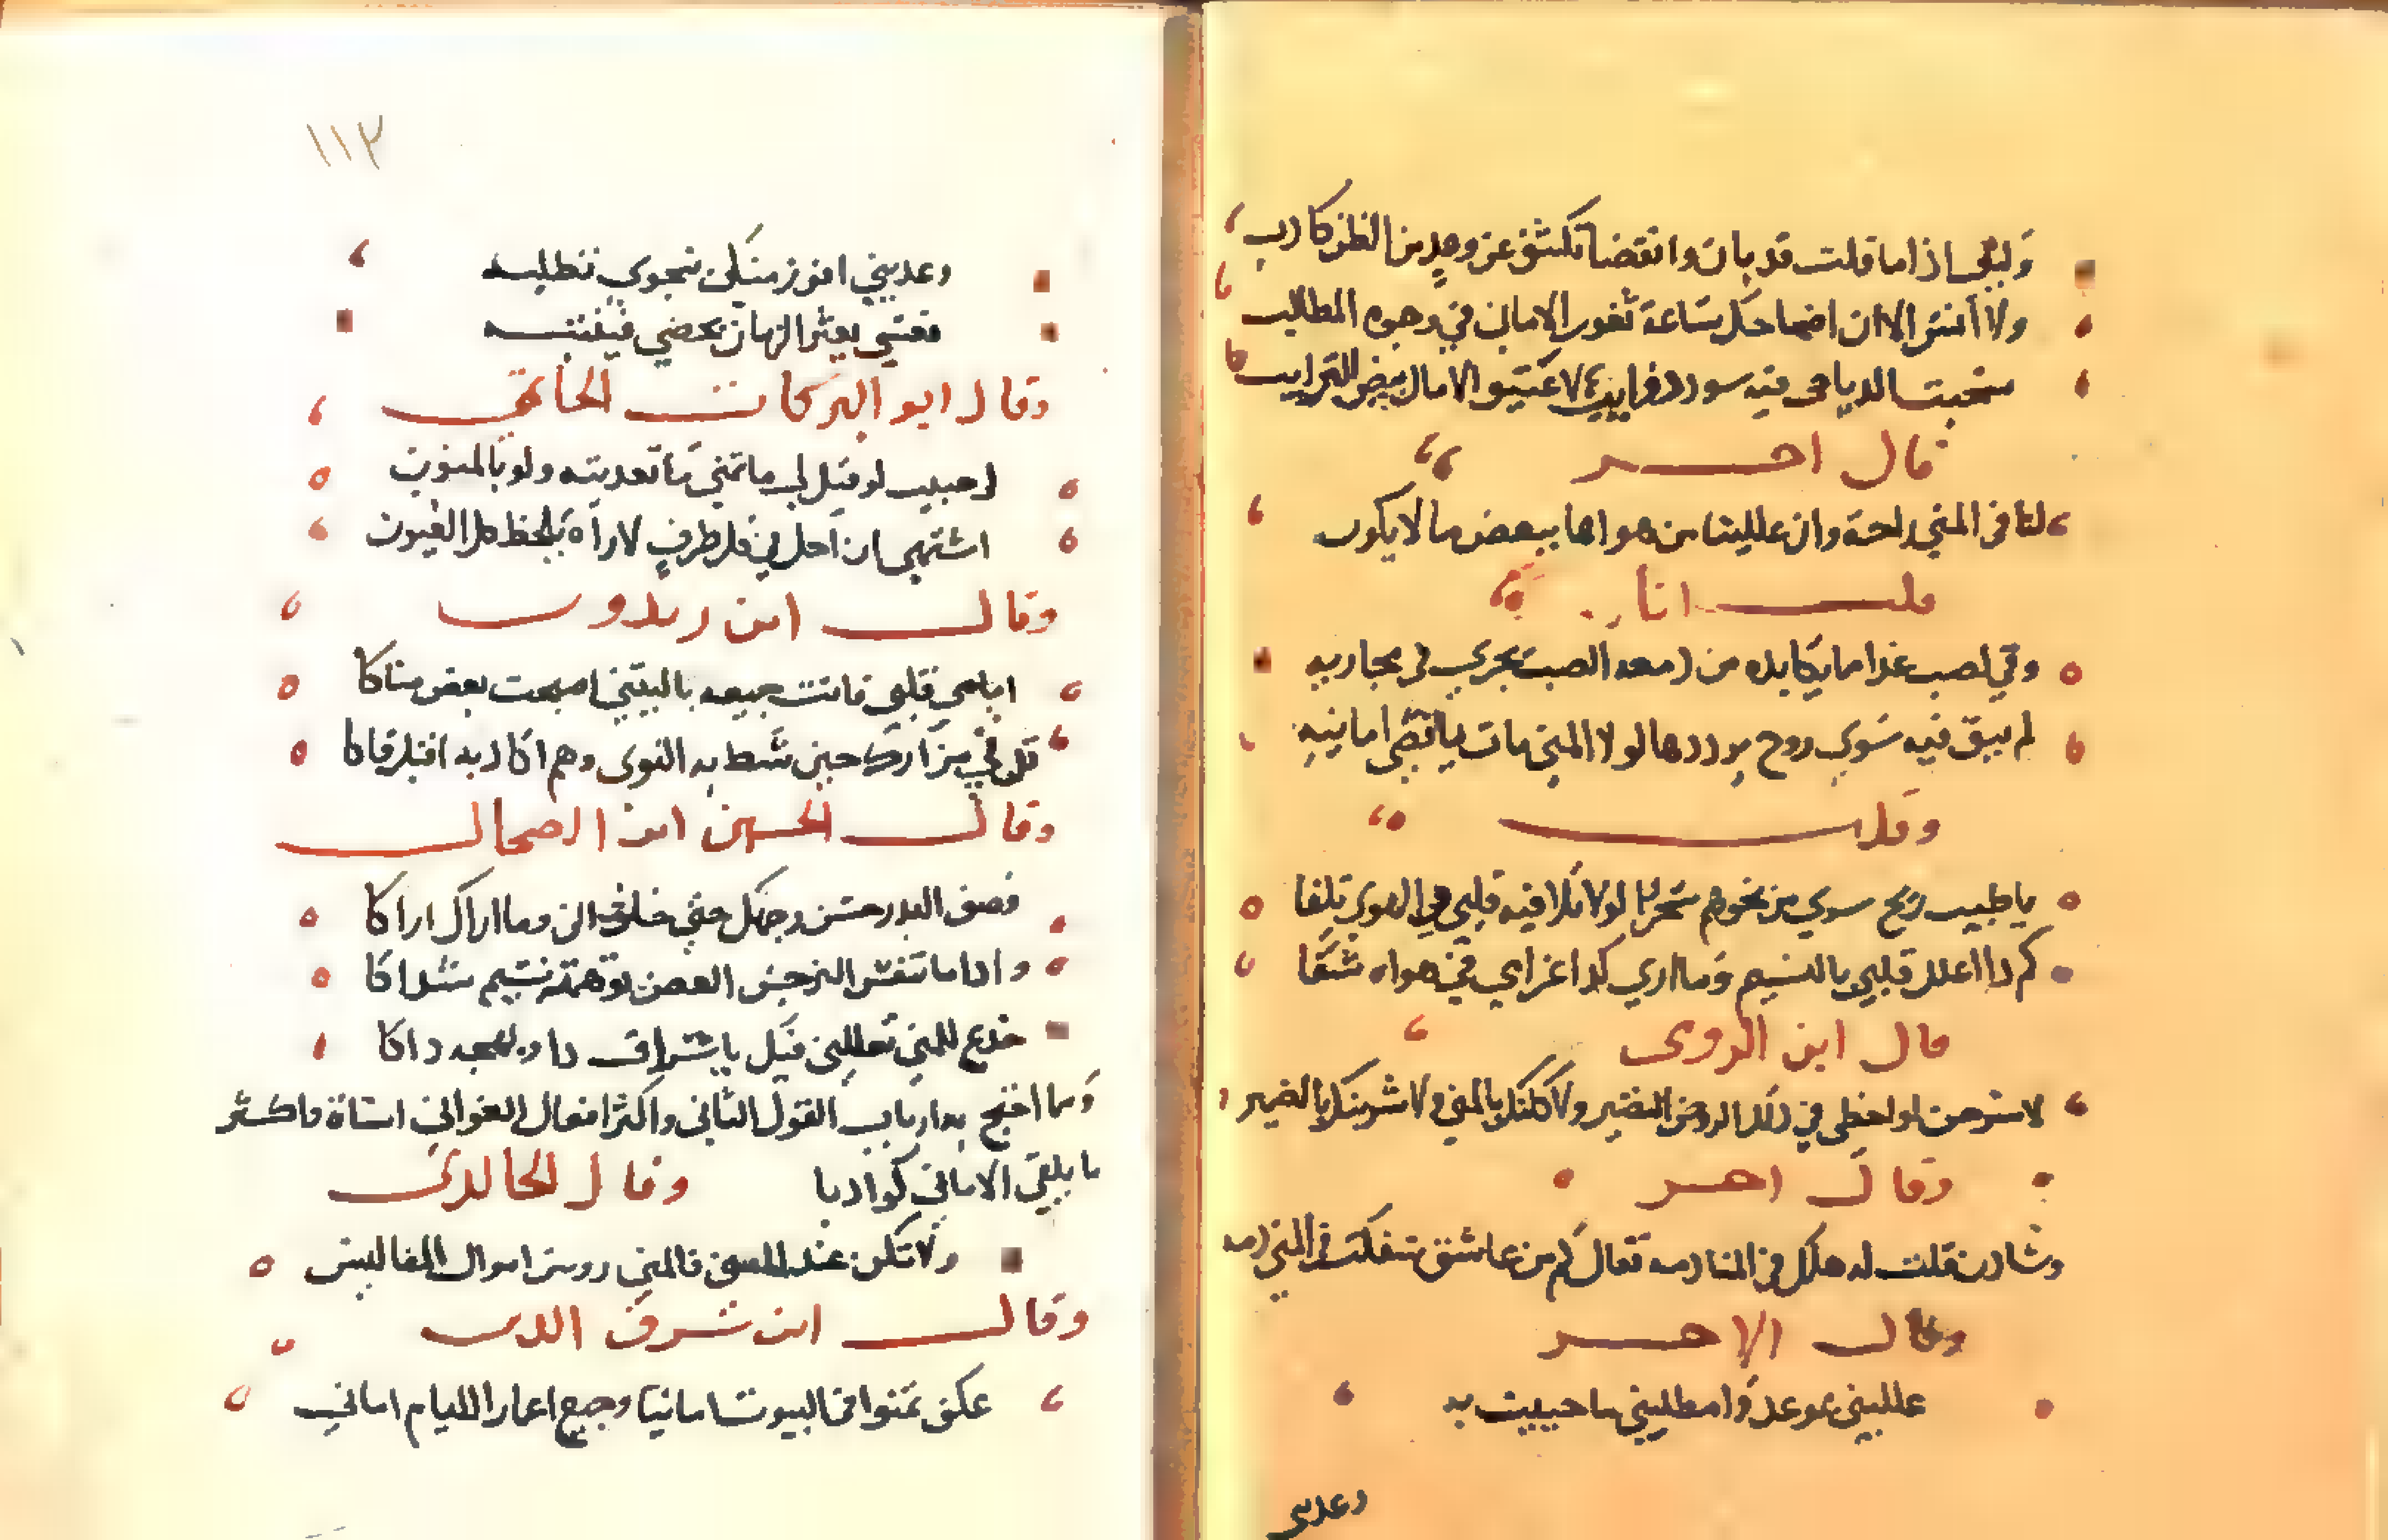 وليلي اذا ما قلت قد بان وانقضا تكشف عن وعد من الظن كاذب
ولا أنس الا ان اضاحك ساعة ثغور الاماني في وجوه المطالب
سحبت الدياجي فيه سود ذوايب لاعتنق الامال بيض الترايب
قال اخر
لنا في المني راحة وان عللينا من هواها ببعض ما لا يكون
قلت انا
وفي لصب غدا مما يكابده من دمعه الصب يجري في مجاريه
لم يبق فيه سوي روح يرددها لولا المني مات يا اقصى امانيه
وقلت
يا طيب ريح سري من نحوهم سحرا لولا تلافيه قلبي في الهوي تلفا
كم ذا اعلل قلبي بالنسيم وما اري لداء غرامي في هواه شفا
قال ابن الرومى
لاسرحن لواحظي في ذلك الروض النضير ولاكلنك بالمني ولاشربنك بالضمير
وقال اخر
وشادن قلت له هل لك في المنادمه فقال كم من عاشق سفكت في المني دمه
وقال الاخر
علليني بموعد وامطليني ما حييت به
وعديني
١١٣
وعديني افوز منك بنجوي تطلبه
فعسي يعثر الزمان بحضي فينتبه
وقال ابو البركات الحاتمي
لي حبيب لو قيل لي ما تمني ما تعديته ولو بالمنون
اشتهي ان احل في كل طرف لاراه بلحظ كل العيون
وقال ابن زيدون
اما مني قلبي فانت جميعه يا ليتني اصبحت بعض مناكا
قل في مزارك حين شط به النوى وهم اكاد به اقبل فاكا
وقال الحسين ابن الضحاك
وصف البدر حسن وجهك حتي خلت اني وما اراك اراكا
واذا ما تنفس النرجس الغض توهمته نسيم شذاكا
خدع للمني تعللني فيك باشراق ذا وبهجة ذاكا
ومما افتتح به ارباب القول الثاني واكثر افعال الغواني اساة واكثر
ما يلقي الاماني كواذبا وقال الخالدي
ولا تكن عند المنى فالمني رووس اموال المفاليس
وقال ابن شرف الدين
عكف تمنوا في البيوت امانيا وجميع اعمار الليام اماني